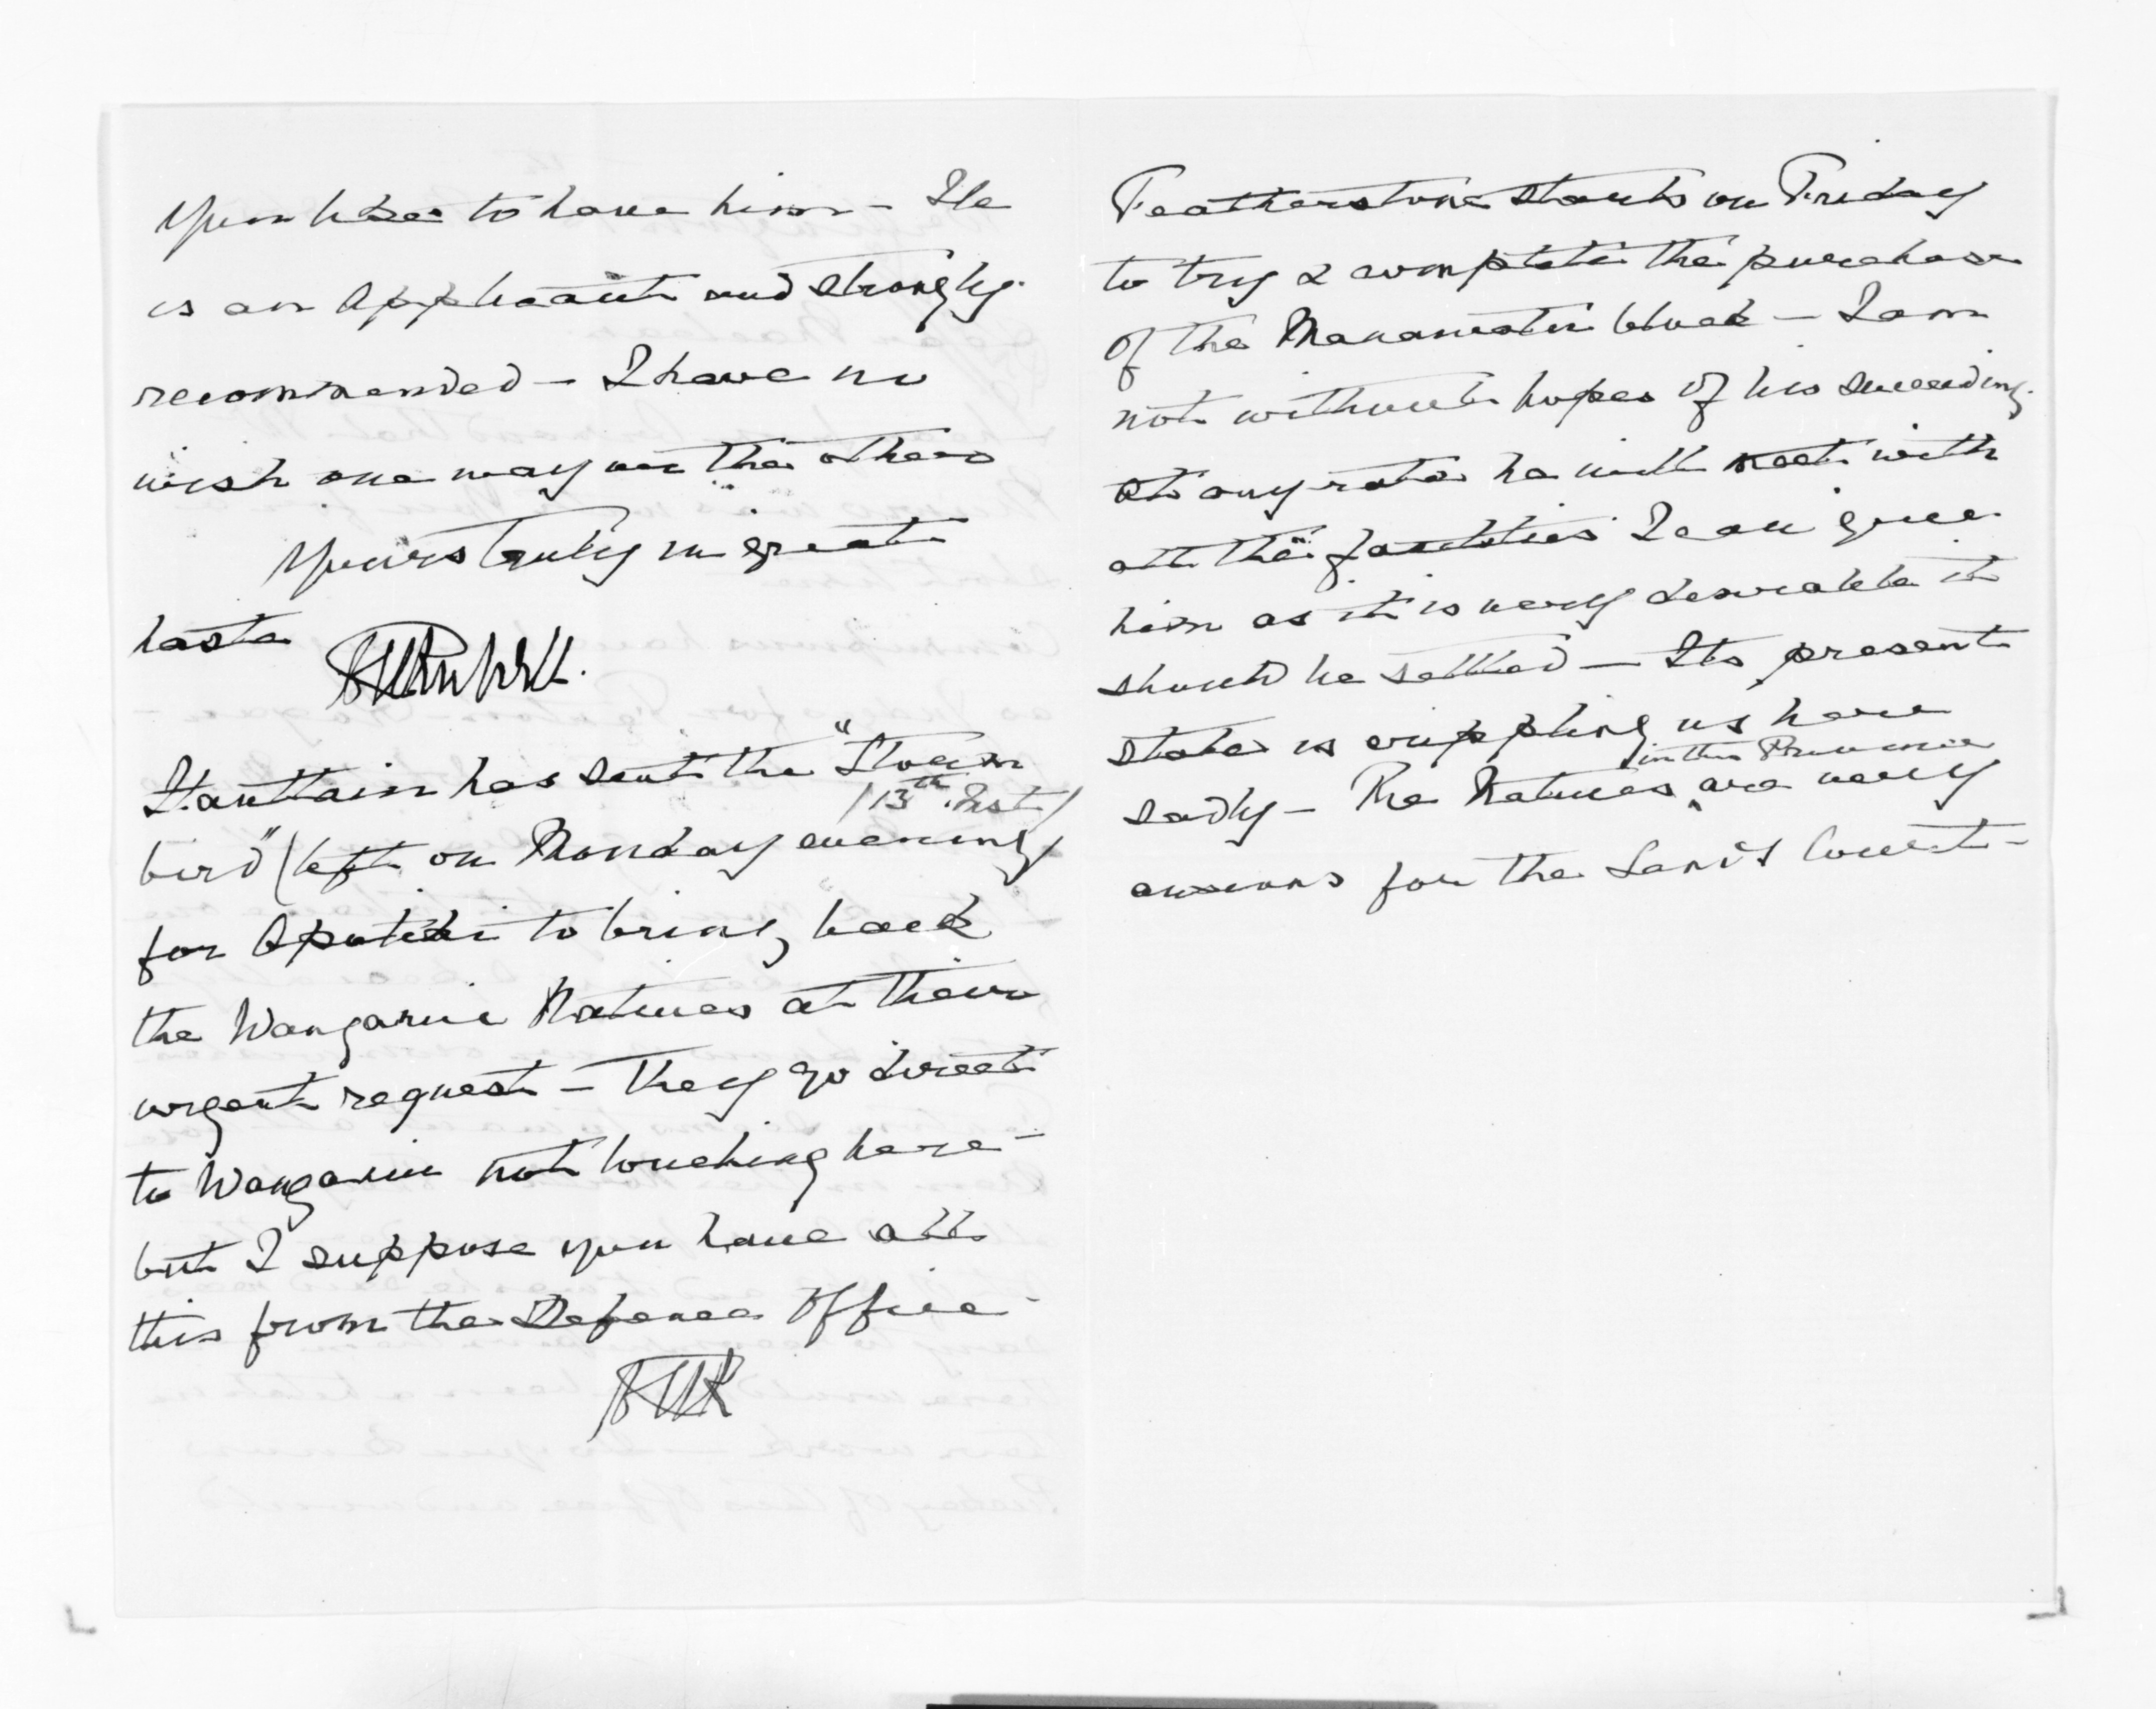 you like to have him – He
is an applicant and strongly
recommended – I have no
wish one way or the other
Yours truly in great
haste
Stanttain has sent the "Storm
/13th Inst/
bird" (left on Monday evening)
for Opotiki to bring back
the Wanganui Natives at their
urgent request – They go direct
to Wanganui not touching here –
but I suppose you have all
this from the Defence Office –
Featherstone starts on Friday
to try & complete the purchase
of the Manawatu block – I am
not without hopes of his succeeding.
At any rate he will meet with
all the facilities I can give
him as it is very desirable it
should be settled – Its present
state is crippling us here
in this Province
sadly – The Natives are very
anxious for the Lands Court –